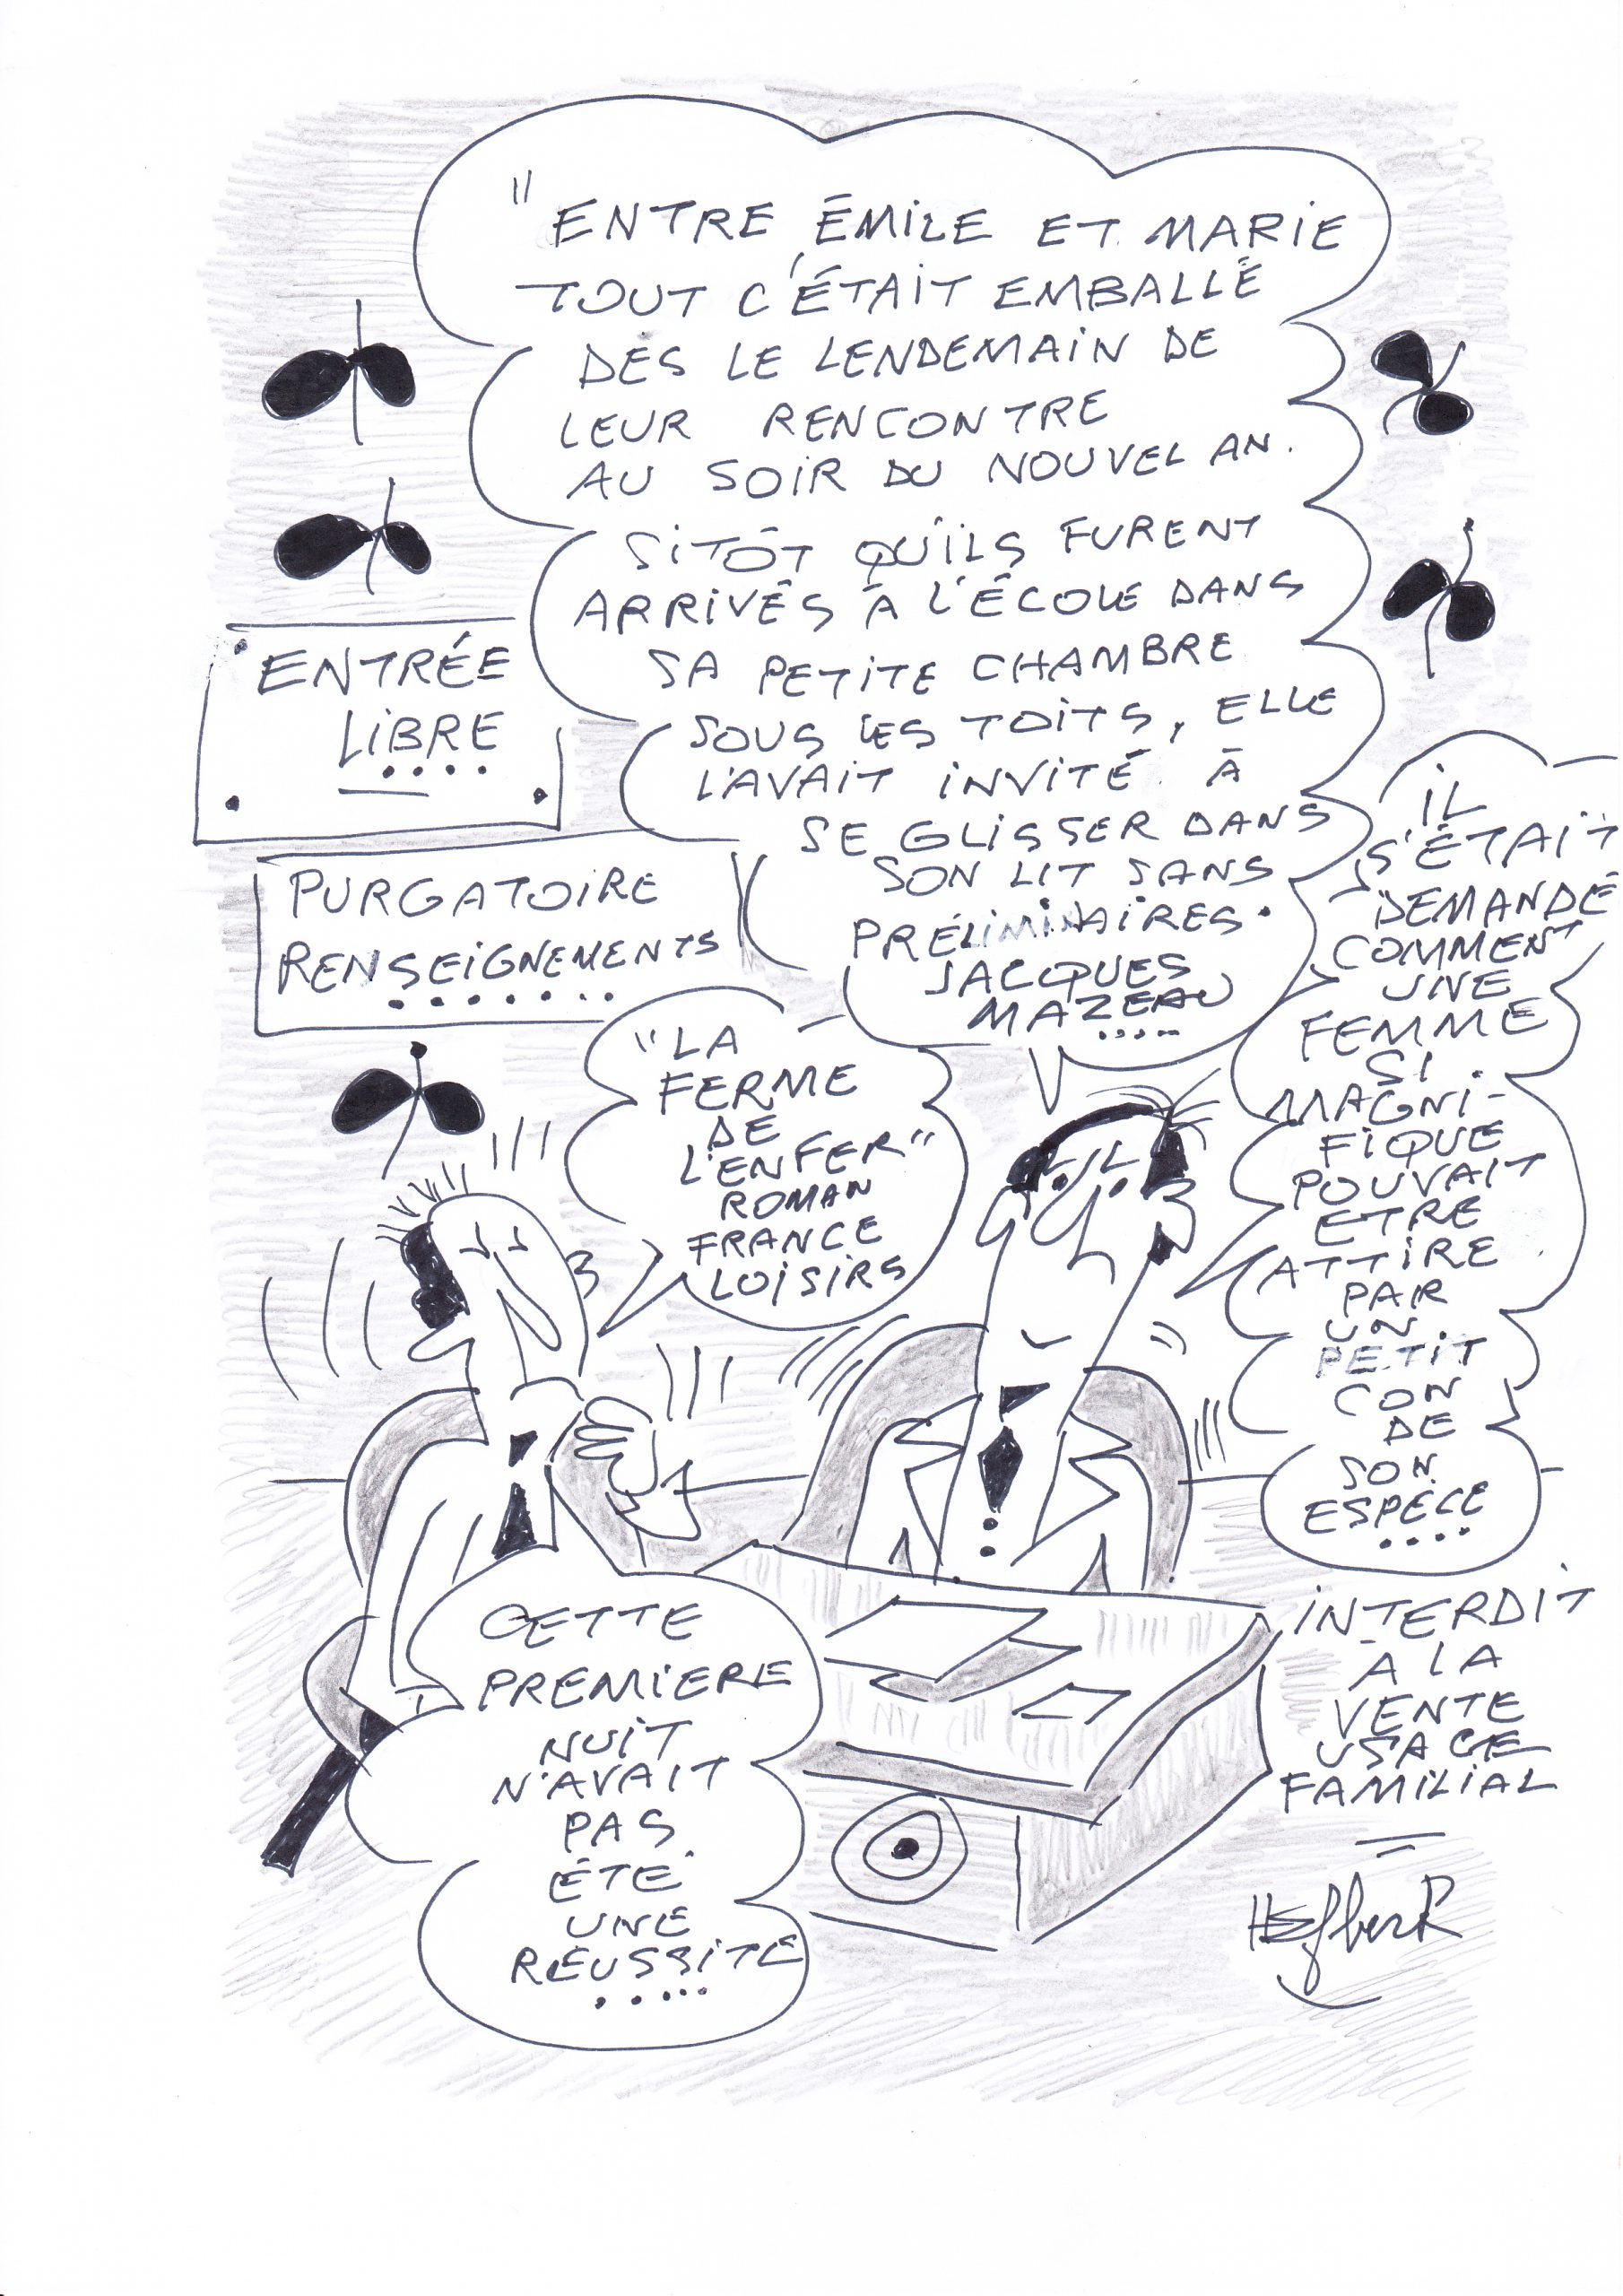 "ENTRE ÉMILE ET MARIE
TOUT C'ÉTAIT EMBALLÉ
DÈS LE LENDEMAIN DE
LEUR RENCONTRE
AU SOIR DU NOUVEL AN.
SITÔT QU'ILS FURENT
ARRIVÉS À L'ÉCOLE DANS
SA PETITE CHAMBRE
SOUS LES TOITS, ELLE
L'AVAIT INVITÉ À
SE GLISSER DANS
SON LIT SANS
PRÉLIMINAIRES.
JACQUES
MAZEAU
.....
ENTRÉE
LIBRE
....
PURGATOIRE
RENSEIGNEMENTS
.......
"LA
FERME
DE
L'ENFER"
ROMAN
FRANCE
LOISIRS
IL
S'ÉTAIT
DEMANDÉ
COMMENT
UNE
FEMME
SI
MAGNI-
FIQUE
POUVAIT
ETRE
ATTIRE
PAR
UN
PETIT
CON
DE
SON
ESPÈCE
....
CETTE
PREMIERE
NUIT
N'AVAIT
PAS
ÉTÉ
UNE
RÉUSSITE
.....
INTERDIT
À LA
VENTE
USAGE
FAMILIAL